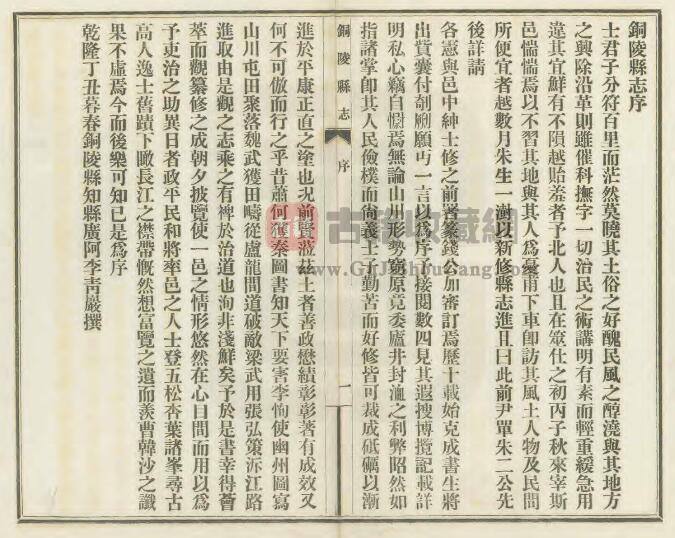 銅陵縣志序
士君子分符百里而茫然莫曉其土俗之好醜民風之醇澆與其地方
之興除沿革則雖催科撫字一切治民之術講明有素而輕重緩急用
違其宜鮮有不隕越貽羞者予北人也且在筮仕之初丙子秋來宰斯
邑惴惴焉以不習其地與其人為憂甫下車即訪其風土人物及民間
所便宜者越數月朱生一澍以新修縣志進且曰此前尹單朱二公先
後詳請
各憲與邑中紳士修之前署篆錢公加審訂焉歷十載始克成書生將
出貲囊付剞劂願丐一言以為序予接閱數四見其遐搜博攬記載詳
明私心竊自慰焉無論山川形勢窮原竟委廬井封洫之利弊昭然如
指諸掌即其人民儉樸而尚義士子勤苦而好修皆可裁成砥礪以漸
銅陵縣志
序
一
進於平康正直之塗也況前賢蒞茲土者善政懋績彰彰著有成效又
何不可倣而行之乎昔蕭何收秦圖書知天下要害李恂使幽州圖寫
山川屯田聚落魏武獲田疇從盧龍間道破敵梁武用張弘策泝江路
進取由是觀之志乘之有裨於治道也洵非淺鮮矣予於是書幸得薈
萃而觀纂修之成朝夕披覽使一邑之情形悠然在心目間而用以為
予吏治之助異日者政平民和將率邑之人士登五松杏葉諸峯尋古
高人逸士舊蹟下瞰長江之襟帶慨然想富覽之遺而羨曹韓沙之讖
果不虛焉今而後樂可知已是為序
乾隆丁丑暮春銅陵縣知縣廣阿李靑巖撰
古籍收藏網
www.GuJiShouCang.com